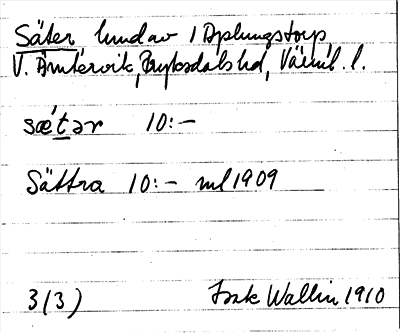 Säter hmd av 1 Aplungstorp,
V. Ämtervik, Fryksdals hd, Värml. l.
sǽtər 10:-
Sättra 10:- ml 1909
3(3) Isak Wallin 1910